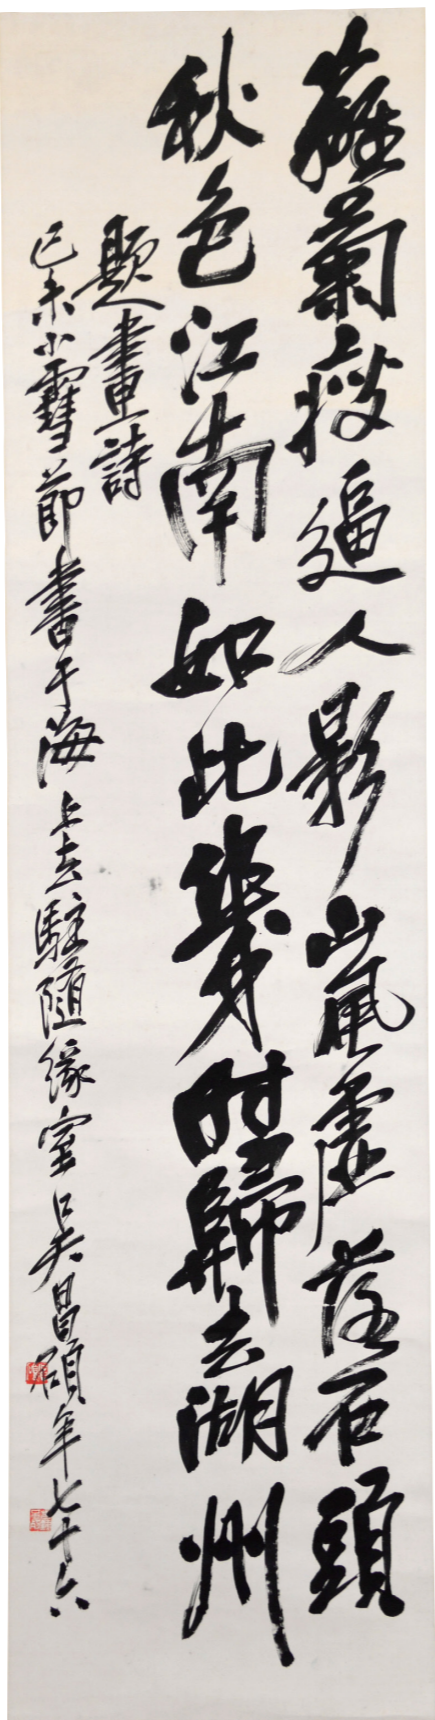 蘺菊瘦逼人影山風虛落石頭
秋色江南如此幾時歸去湖州
題畫詩
己未小雪節書于海上去駐隨緣室吳昌碩年七十六